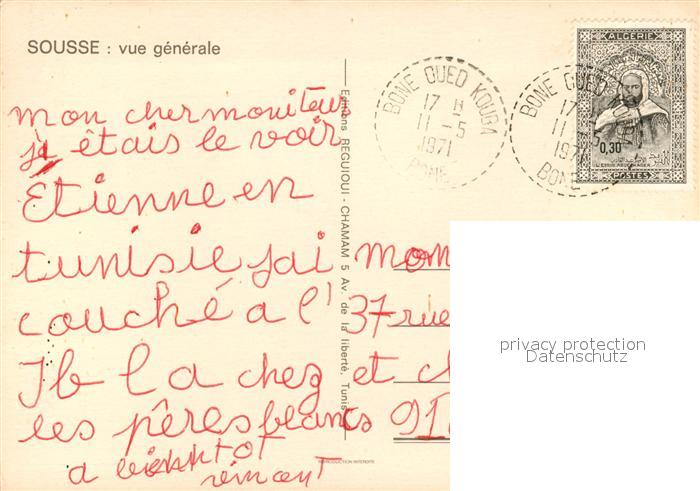 SOUSSE : vue générale
mon cher moniteur
je étais le voir
Etienne en
tunisie jai
couché a l'
Jb la chez
les pêres blancs
a bientot
Editions REGUIOUI - CHAMAM 5 Av. de la liberté, Tunis
REPRODUCTION INTERDITE
BONE OUED KOUBA
17 H
11 - 5
1971
BONE
BONE OUED
17
11
1971
BONE
ALGÉRIE
0,30
POSTES
mon
37 rue
et
91
privacy protection
Datenschutz